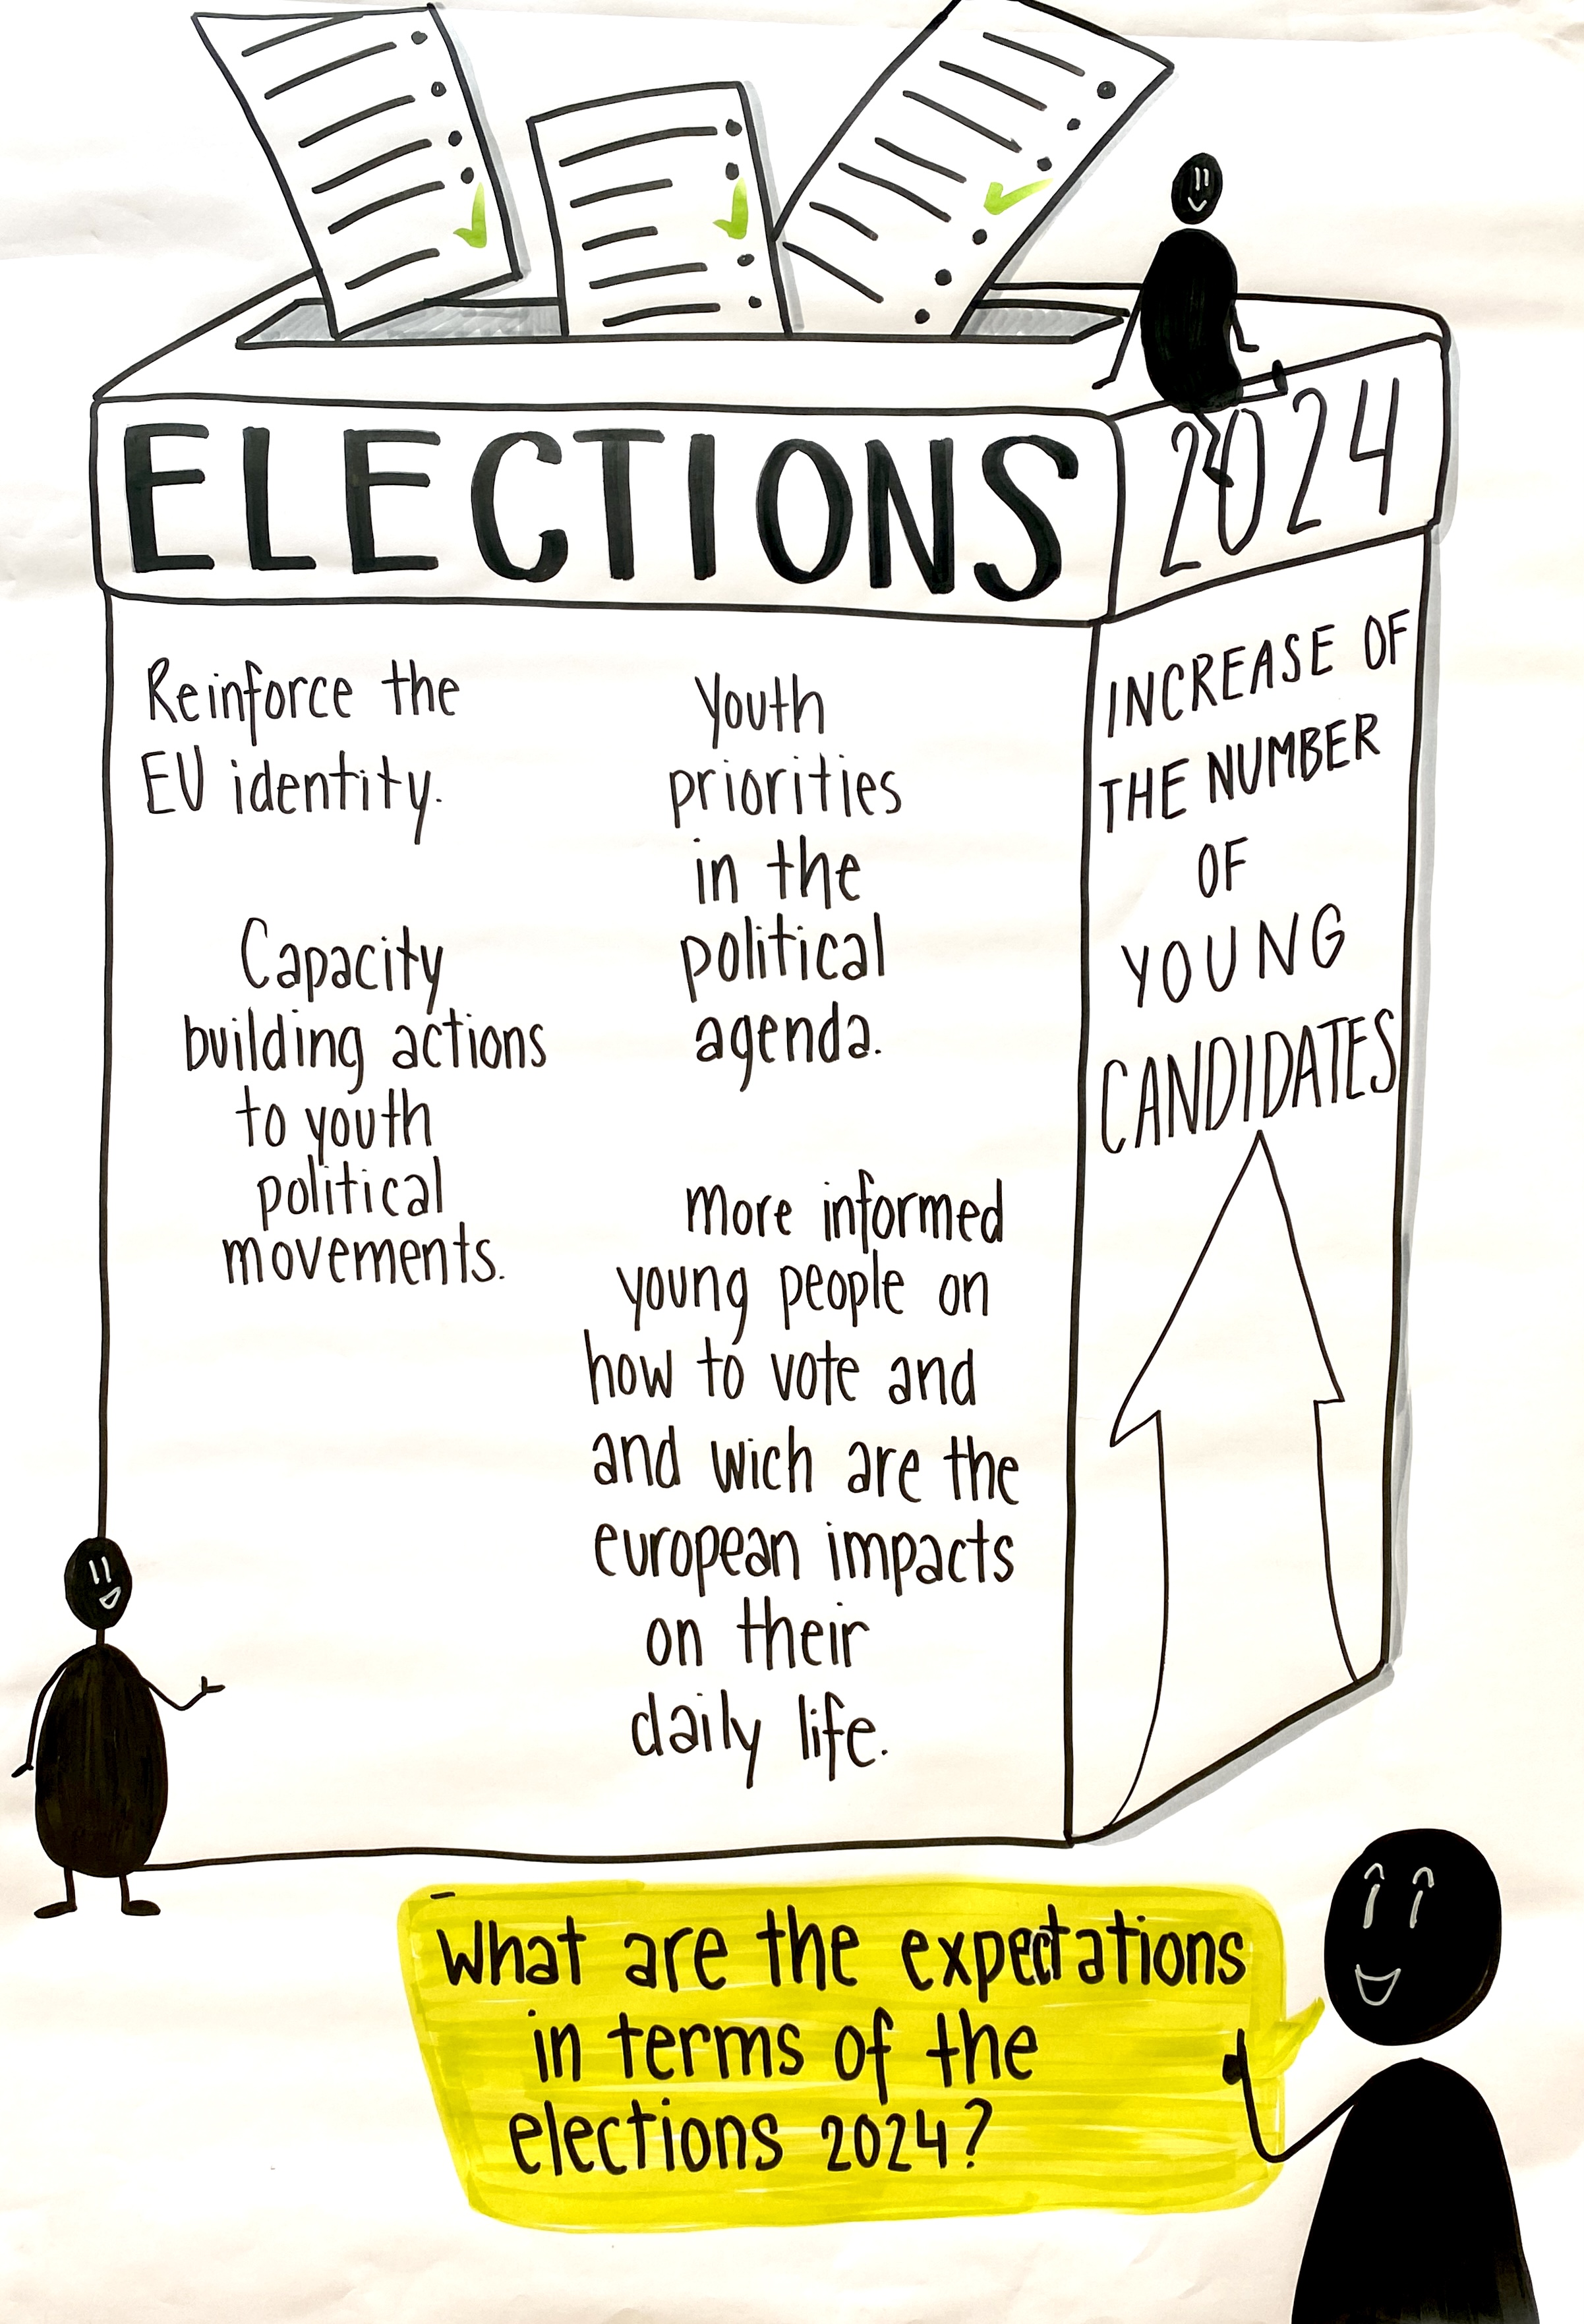 ELECTIONS
2024
Reinforce the
EU identity.
Capacity
building actions
to youth
political
movements.
Youth
priorities
in the
political
agenda.
more informed
young people on
how to vote and
and wich are the
european impacts
on their
daily life.
INCREASE OF
THE NUMBER
OF
YOUNG
CANDIDATES
What are the expectations
in terms of the
elections 2024?